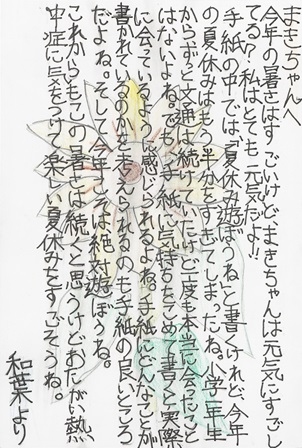 まきちゃんへ
今年の暑さはすごいけどまきちゃんは元気にすごし
てる?私はとても元気だよ!!
手紙の中では「夏休み遊ぼうね」と書くけれど、今年
の夏休みはもう半分もすぎてしまったね。小学一年生
からずっと文通は続けていたけど一度も本当に会ったこと
はないよね。でも手紙に気持ちをこめて書くと実際
に会っているように感じられるよね。手紙にどんなことが
書かれているのかを考えられるのも手紙の良いところ
だよね。そして今年こそは絶対遊ぼうね。
これからもこの暑さは続くと思うけどおたがい熱
中症に気をつけて楽しい夏休みをすごそうね。
和葉より